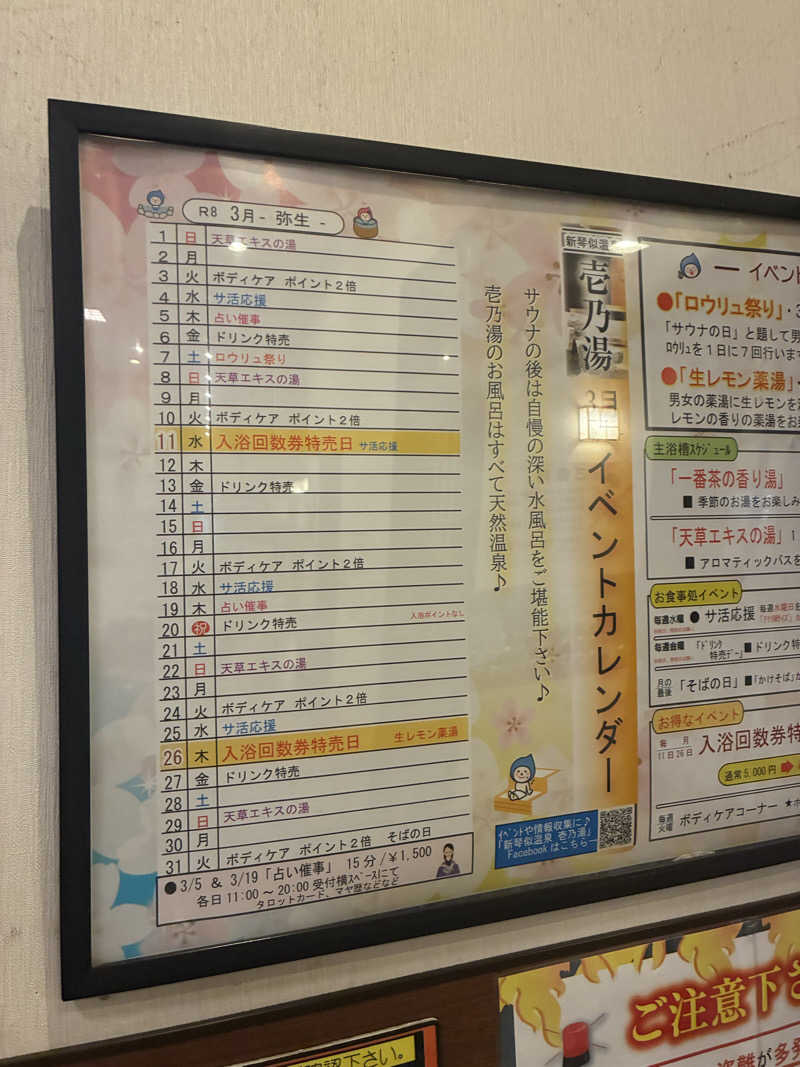 R8 3月- 弥生 -
1 日 天草エキスの湯
2 月
3 火 ボディケア ポイント２倍
4 水 サ活応援
5 木 占い催事
6 金 ドリンク特売
7 土 ロウリュ祭り
8 日 天草エキスの湯
9 月
10 火 ボディケア ポイント２倍
11 水 入浴回数券特売日 サ活応援
12 木
13 金 ドリンク特売
14 土
15 日
16 月
17 火 ボディケア ポイント２倍
18 水 サ活応援
19 木 占い催事
20 祝 ドリンク特売 入浴ポイントなし
21 土
22 日 天草エキスの湯
23 月
24 火 ボディケア ポイント２倍
25 水 サ活応援
26 木 入浴回数券特売日 生レモン薬湯
27 金 ドリンク特売
28 土
29 日 天草エキスの湯
30 月
31 火 ボディケア ポイント２倍 そばの日
●3/5 ＆ 3/19「占い催事」 15分/￥1,500
各日 11:00～20:00 受付横ｽﾍﾟｰｽにて
タロットカード、マヤ暦などなど
新琴似温
壱乃湯
イベントカレンダー
サウナの後は自慢の深い水風呂をご堪能下さい♪
壱乃湯のお風呂はすべて天然温泉♪
ｲﾍﾞﾝﾄや情報収集に♪
「新琴似温泉 壱乃湯」
Facebook はこちら―
― イベン
●「ロウリュ祭り」・3
「サウナの日」と題して男
ﾛｳﾘｭを１日に７回行いま
●「生レモン薬湯」・
男女の薬湯に生レモンを
レモンの香りの薬湯をお
主浴槽ｽｹｼﾞｭｰﾙ
「一番茶の香り湯」
■ 季節のお湯をお楽しみ
「天草エキスの湯」1
■ アロマティックバスを
お食事処イベント
毎週水曜 ● サ活応援 毎週水曜日
毎週金曜 「ﾄﾞﾘﾝｸ特売デー」■ ドリンク特
月の最後 「そばの日」■「かけそば」が
お得なイベント
毎月11日26日 入浴回数券特
通常5,000円
毎週火曜 ボディケアコーナー ★ポ
ご注意下さ
盗難が多発
確認下さい。